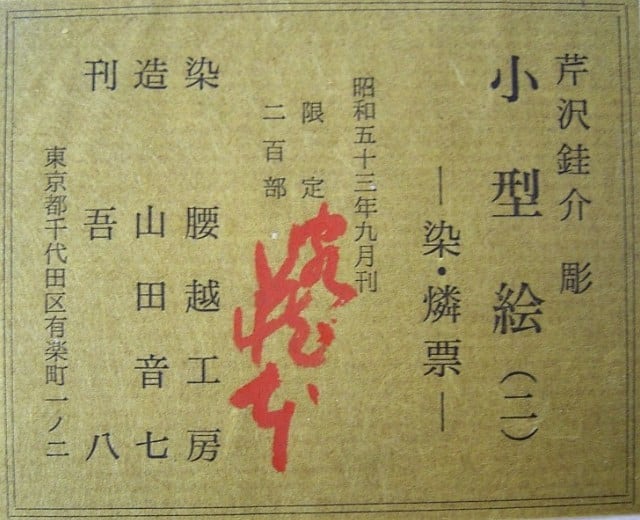 芹沢銈介 彫
小型絵(二)
―染・燐票―
昭和五十三年九月刊
限定
二百部
染 腰越工房
造 山田音七
刊 吾八
東京都千代田区有楽町一ノ二